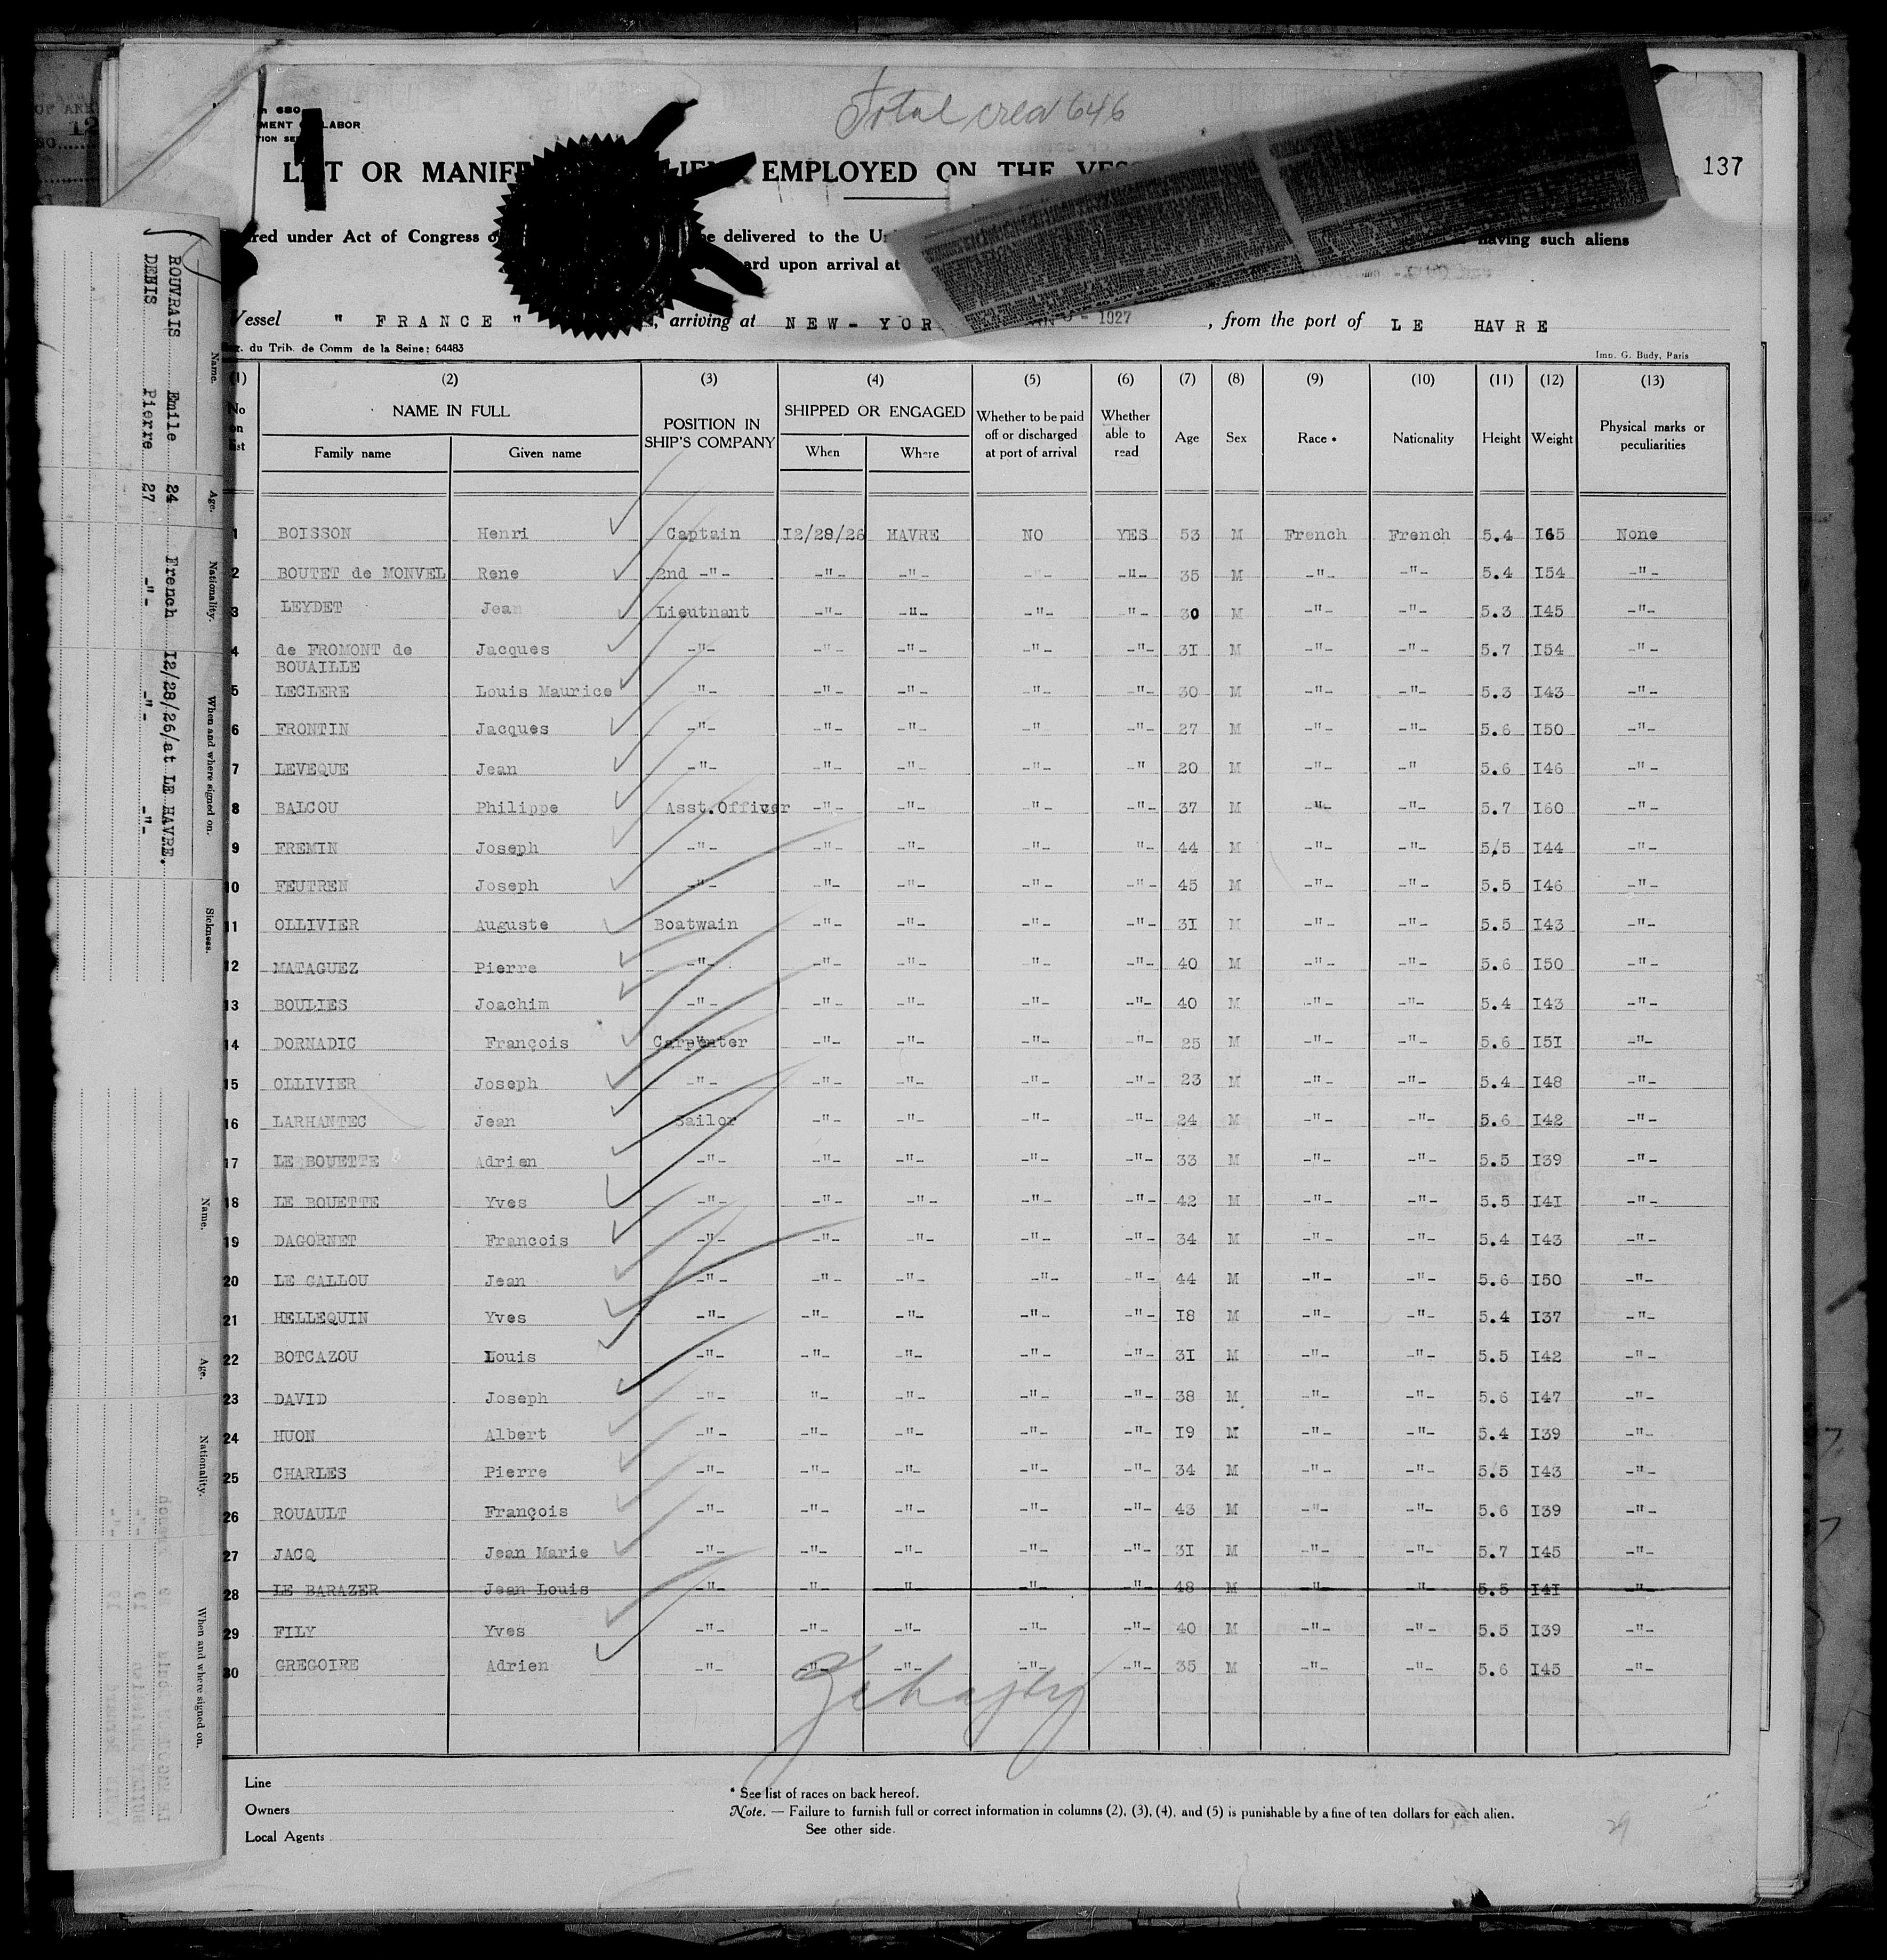 Total crew 646
680
MENT OF LABOR
TION SE
137
LIST OR MANIFE ALIENS EMPLOYED ON THE VESS
red under Act of Congress o be delivered to the Un having such aliens
ard upon arrival at
Vessel " FRANCE " , arriving at NEW-YOR 1927 , from the port of LE HAVRE
du Trib. de Comm de la Seine: 64483
Imp. G. Budy, Paris
(1) (2) (3) (4) (5) (6) (7) (8) (9) (10) (11) (12) (13)
No on list NAME IN FULL POSITION IN SHIP'S COMPANY SHIPPED OR ENGAGED Whether to be paid off or discharged at port of arrival Whether able to read Age Sex Race * Nationality Height Weight Physical marks or peculiarities
Family name Given name When Where
1 BOISSON Henri Captain I2/28/26 HAVRE NO YES 53 M French French 5.4 I65 None
2 BOUTET de MONVEL Rene 2nd -"- -"- -"- -"- -"- 35 M -"- -"- 5.4 I54 -"-
3 LEYDET Jean Lieutnant -"- -"- -"- "- 30 M -"- -"- 5.3 I45 -"-
4 de FROMONT de BOUAILLE Jacques -"- -"- -"- -"- -"- 3I M -"- -"- 5.7 I54 -"-
5 LECLERE Louis Maurice -"- -"- -"- -"- -"- 30 M -"- -"- 5.3 I43 -"-
6 FRONTIN Jacques -"- -"- -"- -"- -"- 27 M -"- -"- 5.6 I50 -"-
7 LEVEQUE Jean -"- -"- -"- -"- -" 20 M -"- -" 5.6 I46 -"-
8 BALCOU Philippe Asst.Officer -"- -"- -"- -"- 37 M -"- -"- 5.7 I60 -"-
9 FREMIN Joseph -"- -"- -"- -"- "- 44 M -"- -"- 5.5 I44 -"-
10 FEUTREN Joseph -"- -"- -"- -"- -"- 45 M -"- -"- 5.5 I46 -"-
11 OLLIVIER Auguste Boatwain -"- -"- -"- -"- 3I M -"- -"- 5.5 I43 -"-
12 MATAGUEZ Pierre -"- -"- -"- -"- -"- 40 M -"- -"- 5.6 I50 -"-
13 BOULIES Joachim -"- -"- -"- -"- -"- 40 M -"- -"- 5.4 I43 -"-
14 DORNADIC François Carpenter -"- -"- -"- -"- 25 M -"- -"- 5.6 I5I -"-
15 OLLIVIER Joseph -"- -"- -"- -"- -"- 23 M -"- -"- 5.4 I48 -"-
16 LARHANTEC Jean Sailor -"- -"- -"- -"- 24 M -"- -"- 5.6 I42 -"-
17 LE BOUETTE Adrien -"- -"- -"- -"- -"- 33 M -"- -"- 5.5 I39 -"-
18 LE BOUETTE Yves -"- -"- -"- -"- -"- 42 M -"- -"- 5.5 I4I -"-
19 DAGORNET Francois -"- -"- -"- -"- -"- 34 M -"- -"- 5.4 I43 -"-
20 LE CALLOU Jean -"- -"- -"- -"- -"- 44 M -"- -"- 5.6 I50 -"-
21 HELLEQUIN Yves -"- -"- -"- -"- -"- I8 M -"- -"- 5.4 I37 -"-
22 BOTCAZOU Louis -"- -"- -"- -"- -"- 3I M -"- -"- 5.5 I42 -"-
23 DAVID Joseph -"- "- -"- -"- -"- 38 M -"- -"- 5.6 I47 -"-
24 HUON Albert -"- -"- -"- -"- -"- I9 M -"- -"- 5.4 I39 -"-
25 CHARLES Pierre -"- -"- -"- -"- -"- 34 M -"- -"- 5.5 I43 -"-
26 ROUAULT François -"- -"- -"- -"- -"- 43 M -"- -"- 5.6 I39 -"-
27 JACQ Jean Marie -"- -"- -"- -"- -"- 3I M -"- -"- 5.7 I45 -"-
28 LE BARAZER Jean Louis -"- -"- -"- -"- -"- 48 M -"- -"- 5.5 I4I -"-
29 FILY Yves -"- -"- -"- -"- -"- 40 M -"- -"- 5.5 I39 -"-
30 GREGOIRE Adrien -"- -"- -"- -"- -"- 35 M -"- -"- 5.6 I45 -"-
Line
Owners
Local Agents
* See list of races on back hereof.
Note. — Failure to furnish full or correct information in columns (2), (3), (4), and (5) is punishable by a fine of ten dollars for each alien.
See other side.
29
Name. Age. Nationality. When and where signed on. Sickness.
ROUVRAIS Emile 24 French I2/28/26/at LE HAVRE.
DENIS Pierre 27 -"- -"- -"-
Name. Age. Nationality. When and where signed on.